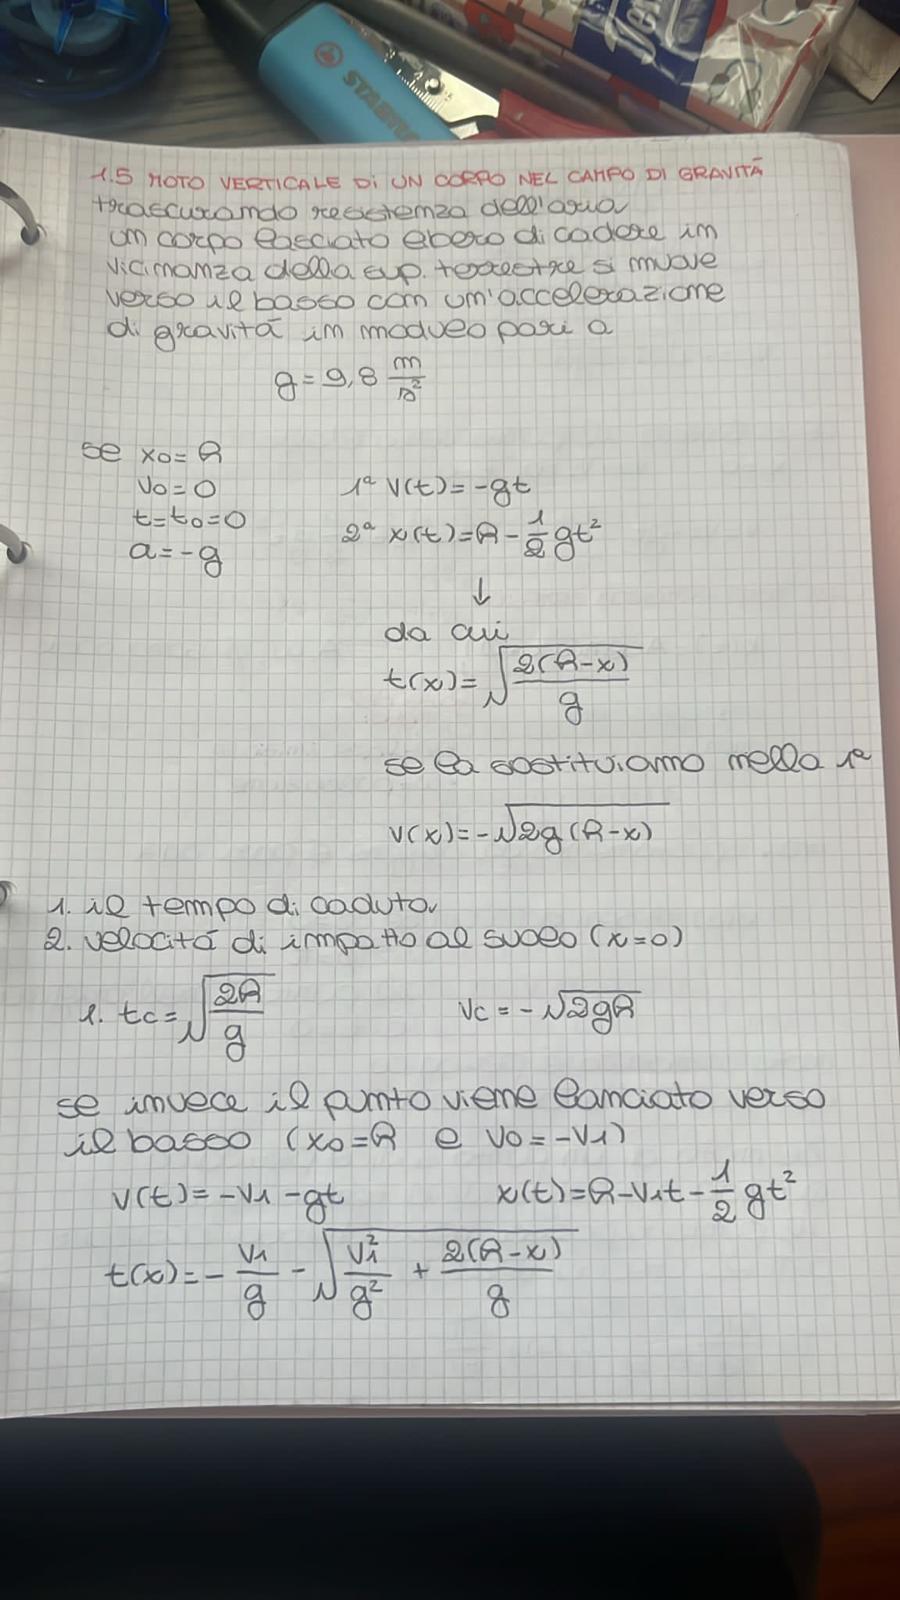 STABILO
1.5 MOTO VERTICALE DI UN CORPO NEL CAMPO DI GRAVITÁ
trascurando resistenza dell'aria
un corpo lasciato libero di cadere in
vicinanza della sup. terrestre si muove
verso il basso con un'accelerazione
di gravitá in modulo pari a
g = 9,8 m/s²
se x0 = h
v0 = 0
t = t0 = 0
a = -g
1ª v(t) = -gt
2ª x(t) = h - 1/2 gt²
↓
da cui
t(x) = √(2(h-x)/g)
se la sostituiamo nella 1ª
v(x) = -√(2g(h-x))
1. il tempo di caduta
2. velocitá di impatto al suolo (x=0)
1. tc = √(2h/g) vc = -√(2gh)
se invece il punto viene lanciato verso
il basso (x0 = h e v0 = -v1)
v(t) = -v1 - gt x(t) = h - v1t - 1/2 gt²
t(x) = - v1/g - √(v1²/g² + 2(h-x)/g)